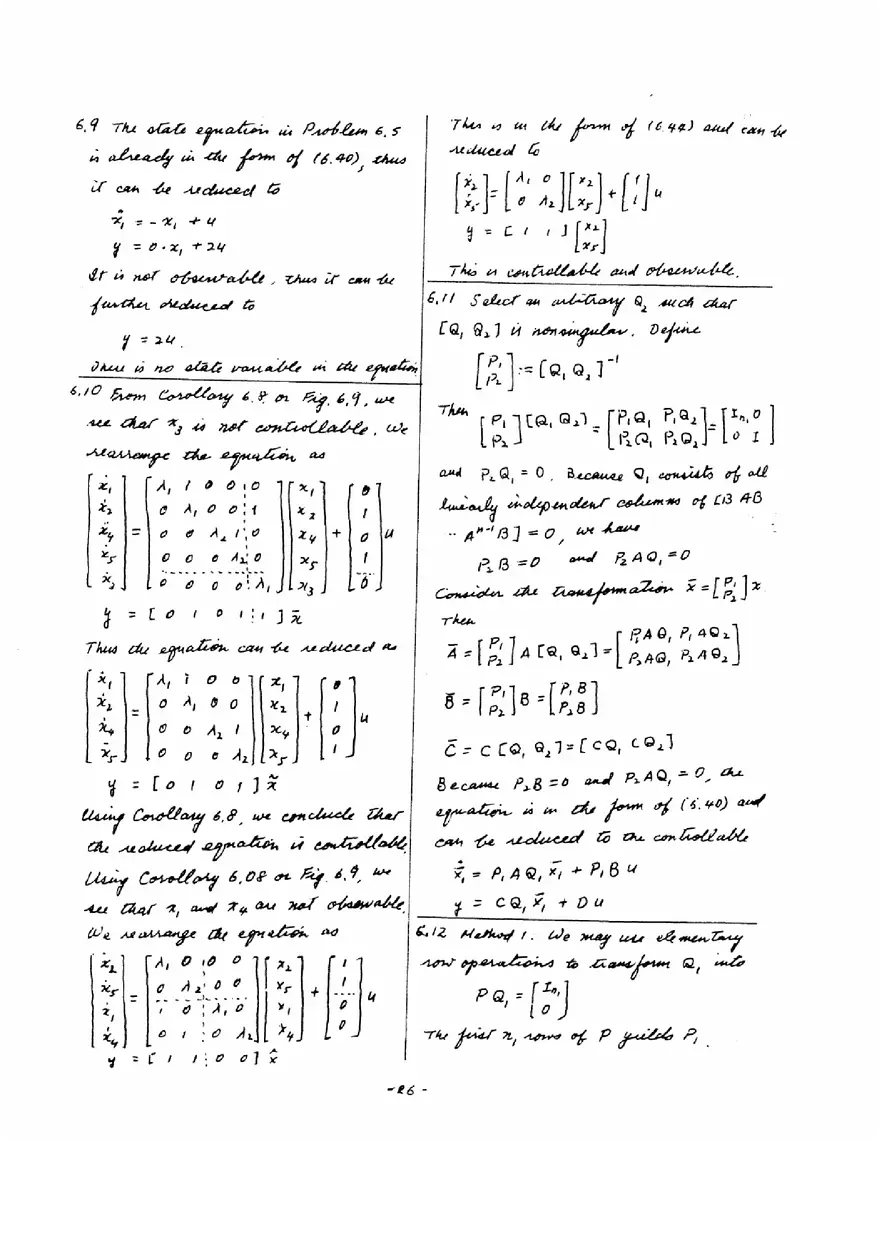 6.9 The state equation in Problem 6.5
is already in the form of (6.40), thus
it can be reduced to
ẋ₁ = - x₁ + u
y = 0·x₁ + 2u
It is not observable, thus it can be
further reduced to
y = 2u.
There is no state variable in the equation
6.10 From Corollary 6.8 or Fig. 6.9, we
see that x₃ is not controllable. We
rearrange the equation as
[ẋ₁] [λ₁ 1 0 0 ¦ 0] [x₁] [0]
[ẋ₂] [0 λ₁ 0 0 ¦ 1] [x₂] [1]
[ẋ₄] = [0 0 λ₂ 1 ¦ 0] [x₄] + [0] u
[ẋ₅] [0 0 0 λ₂ ¦ 0] [x₅] [1]
[ẋ₃] [0 0 0 0 ¦ λ₁] [x₃] [0]
y = [0 1 0 1 ¦ 1] x̄
Thus the equation can be reduced as
[ẋ₁] [λ₁ 1 0 0] [x₁] [0]
[ẋ₂] = [0 λ₁ 0 0] [x₂] + [1] u
[ẋ₄] [0 0 λ₂ 1] [x₄] [0]
[ẋ₅] [0 0 0 λ₂] [x₅] [1]
y = [0 1 0 1] x̃
Using Corollary 6.8, we conclude that
the reduced equation is controllable.
Using Corollary 6.O8 or Fig. 6.9, we
see that x₁ and x₄ are not observable.
We rearrange the equation as
[ẋ₂] [λ₁ 0 ¦ 0 0] [x₂] [1]
[ẋ₅] = [0 λ₂ ¦ 0 0] [x₅] + [1] u
[ẋ₁] [1 0 ¦ λ₁ 0] [x₁] [0]
[ẋ₄] [0 1 ¦ 0 λ₂] [x₄] [0]
y = [1 1 ¦ 0 0] x̂
This is in the form of (6.44) and can be
reduced to
[ẋ₂] = [λ₁ 0] [x₂] + [1] u
[ẋ₅] [0 λ₂] [x₅] [1]
y = [1 1] [x₂]
[x₅]
This is controllable and observable.
6.11 Select an arbitrary Q₂ such that
[Q₁ Q₂] is nonsingular. Define
[P₁] := [Q₁ Q₂]⁻¹
[P₂]
Then [P₁] [Q₁ Q₂] = [P₁Q₁ P₁Q₂] = [Iₙ₁ 0]
[P₂] [P₂Q₁ P₂Q₂] [0 I]
and P₂Q₁ = 0. Because Q₁ consists of all
linearly independent columns of [B AB
·· Aⁿ⁻¹B] = 0, we have
P₂B = 0 and P₂AQ₁ = 0
Consider the transformation x̄ = [P₁] x
[P₂]
Then
Ā = [P₁] A [Q₁ Q₂] = [P₁AQ₁ P₁AQ₂]
[P₂] [P₂AQ₁ P₂AQ₂]
B̄ = [P₁] B = [P₁B]
[P₂] [P₂B]
C̄ = C [Q₁ Q₂] = [CQ₁ CQ₂]
Because P₂B = 0 and P₂AQ₁ = 0, the
equation is in the form of (6.40) and
can be reduced to the controllable
ẋ̄₁ = P₁AQ₁ x̄₁ + P₁B u
y = CQ₁ x̄₁ + D u
6.12 Method 1. We may use elementary
row operations to transform Q₁ into
PQ₁ = [Iₙ₁]
[0]
The first n₁ rows of P yields P₁.
-26-